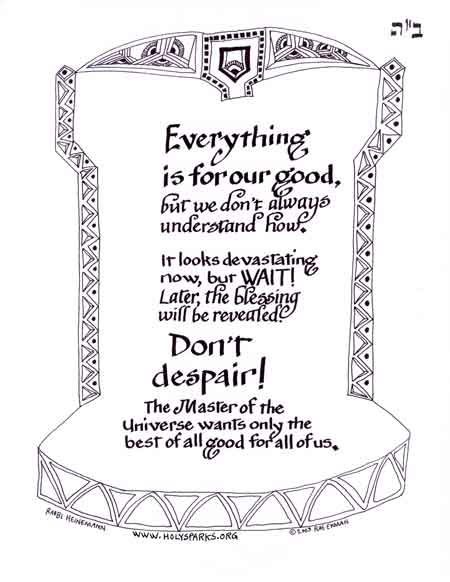 ב״ה
Everything
is for our good,
but we don't always
understand how.
It looks devastating
now, but WAIT!
Later, the blessing
will be revealed.
Don't
despair!
The Master of the
Universe wants only the
best of all good for all of us.
RABBI HEINEMANN
WWW.HOLYSPARKS.ORG
© 2003 RAE EKMAN